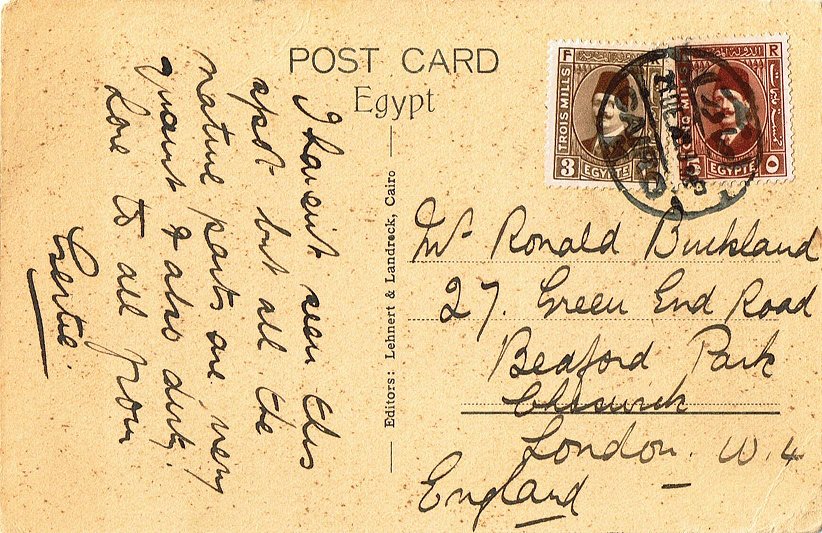 POST CARD
Egypt
I haven't seen this
spot but all the
native parts are very
quaint & also dirty.
Love to all from
Gertie.
Editors: Lehnert & Landrock, Cairo
F
TROIS MILLS
3
EGYPTE
R
MILLS
EGYPTE
٥
CAIRO
Mr Ronald Buckland
27. Green End Road
Bedford Park
Chiswick
London. W.4
England